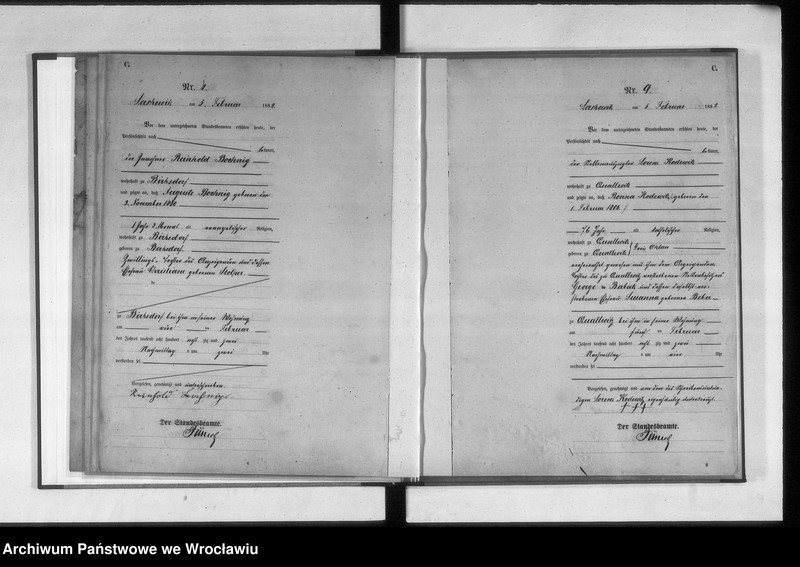 C.
Nr. 8.
am 5. Februar 1882
Vor dem unterzeichneten Standesbeamten erschien heute, der
Persönlichkeit nach
kannt,
der Reinhold Bochnig
wohnhaft zu Bärsdorf
und zeigte an, daß Auguste Bochnig geboren den
2. November 1880
1 Jahr 3 Monat alt evangelischer Religion,
wohnhaft zu Bärsdorf
geboren zu Bärsdorf
Zwillings-Tochter des Anzeigenden und dessen
Ehefrau Christiane geborenen
zu Bärsdorf bei ihm in seiner Wohnung
am vier ten Februar
des Jahres tausend acht hundert acht zig und zwei
Nachmittag s um zwei Uhr
verstorben sei
Vorgelesen, genehmigt und unterschrieben
Reinhold
Der Standesbeamte.
C.
Nr. 9.
am 6. Februar 1882
Vor dem unterzeichneten Standesbeamten erschien heute, der
Persönlichkeit nach
kannt,
der Stellenauszügler Lorenz
wohnhaft zu Quallwitz
und zeigte an, daß Rosina geboren den
1. Februar 1806
76 Jahr alt katholischer Religion,
wohnhaft zu Quallwitz
geboren zu Quallwitz
verheirathet gewesen mit ihm dem Anzeigenden
Tochter des zu Quallwitz verstorbenen Stellenbesitzers
George und dessen daselbst ver-
storbenen Ehefrau Susanna geborene
zu Quallwitz bei ihm in seiner Wohnung
am fünf ten Februar
des Jahres tausend acht hundert acht zig und zwei
Nachmittag s um vier Uhr
verstorben sei
Vorgelesen, genehmigt und von dem des Schreibens unkun-
digen Lorenz eigenhändig unterkreuzt
+++
Der Standesbeamte.
Archiwum Państwowe we Wrocławiu